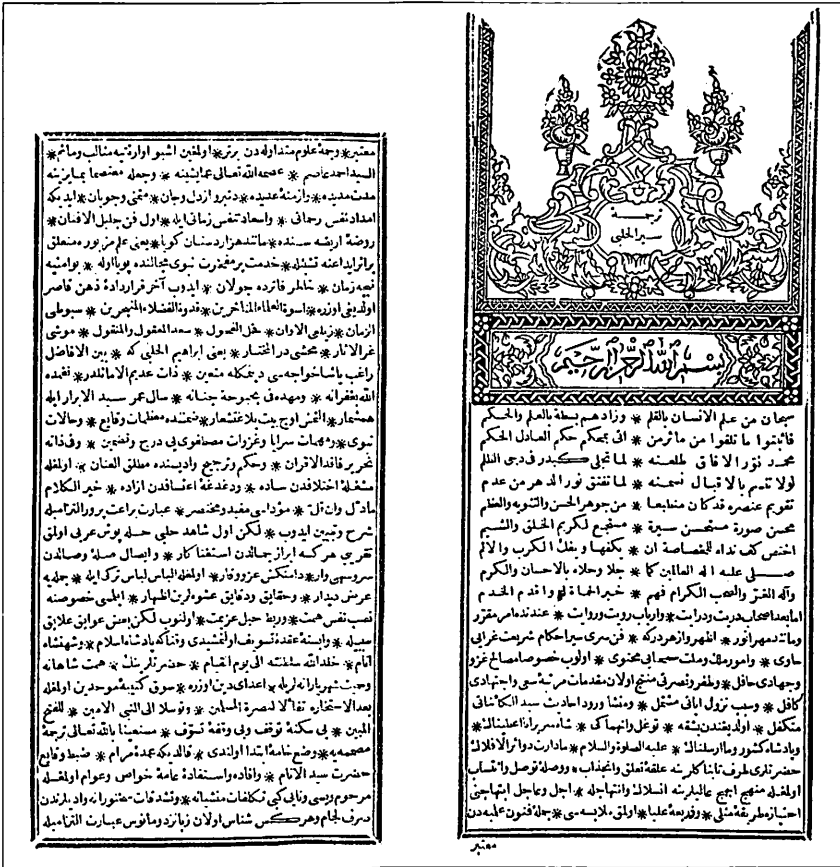 ترجمة
سيرالحلبى
بسم الله الرحمن الرحيم
سبحان من علم الانسان بالقلم * وزادهم بسطة بالعلم والحكم
فاثبتوا ما تلقوا من مآثر من * اتى بمحكم حكم العادل الحكم
محمد نور الافاق طلعته * لما تجلى كبدر فى دجى الظلم
لولا تبسم بالاقبال نسمته * لما تفتق نور الدهر من عدم
تقويم عنصره قد كان منطبعا * من جوهر الحسن والتنويه والعظم
بحسن صورة مستحسن سيرة * مستجمع لكريم الخلق والشيم
اختص كف نداه ان * يكفها ويفك الكرب والالم
صلى عليه اله العالمين كما * جلا وحلاه بالاحسان والكرم
وآله الغر والصحب الكرام فهم * خير الحماة له واقدم الخدم
اما بعد اصحاب درت ودرايت * وارباب رويت وروايت * عندنده امر مقرر
ومانند مهر انور * اظهر وازهر دركه * فن سرى سير احكام شريعت غرايى
حاوى * وامور ملك وملت سمحايى محتوى * اولوب خصوصا مصالح غزو
وجهادى حافل * وظفر ونصرتى منتج اولان مقدمات مرتبة سعى واجتهادى
كافل * وسبب نزول اياتى مشتمل * ومنشأ ورود احاديث سيد الكائناتى
متكفل * اولديغندن بشقه * توغل وانهماكى * شاه سرير انا اعطيناك *
وپادشاه كشور وما ارسلناك * عليه الصلوة والسلام * مادارت دوائر الافلاك *
حضرتلرى طرف تابناكلرينه علقۀ تعلق وانجذاب * ووصلۀ توصل وانتساب
اولمغله منهج ابهج عاليلرينه انسلاك وانتهاجله * اجل وعاجل ابتهاجنى
احتيازه طريقۀ مثلى * وذريعۀ عليا * اولمق ملابسه سى * جملۀ فنون عليه دن
معتبر
معتبر * وجملۀ علوم متداوله دن برتر * اولمغين اشبو آوارۀ تيه مثالب ومآثم *
السيد احمد عاصم * عصمه الله تعالى عما يشينه * وجعله معتصما بما يزينه
مدت مديده * وازمنۀ عديده * دنبرو ازدل وجان * متمنى وجويان * ايديكه
امداد نفس رحمانى * واسعاد تنفس زمانى ايله * اول فن جليل الافنان *
روضۀ اريضه سنده * مانند هزاردستان كويا * يعنى علم مزبوره متعلق
براثر ابداعنه تشبثله * خدمت پرمفخرت نبوى مجالنده پويا اوله * بو امنيه
نبيه زمان * خاطر فاترده جولان * ايدوب آخر قراردادۀ ذهن قاصر
اولديغى اوزره * اسوة العلماء المتأخرين * قدوة الفضلاء المتبحرين * سيوطى
الزمان * زيلعى الاوان * فحل الفحول * سعد المعقول والمنقول * موشى
غرر الآثار * محشى در المختار * يعنى ابراهيم الحلبى كه * بين الافاضل
راغب پاشا خواجه سى ديمكله متعين * ذات عديم الاماثلدر * تغمده
الله بغفرانه * ومهده فى بحبوحة جنانه * سال عمر سيد الابرار ايله
همشمار * التمش اوچ بيت بلاغتشعار * ضمننده معظمات وقايع * وحالات
نبوى * ومهمات سرايا وغزوات مصطفوى يى درج وتضمين * وفى ذاته
نحرير فاقد الاقران * وحكم وترجيح واديسنده مطلق العنان * اولمغله
مشغلۀ اختلافدن ساده * ودغدغۀ اعتسافدن ازاده * خير الكلام
مادل وان قل * مؤداسى مفيد ومختصر * عبارت براعت پرور التزاميله
شرح وتبيين ايدوب * لكن اول شاهد حلبى حله پوش عربى اولمق
تقريبى هركسه ابراز جمالدن استغناكار * وايصال صله وصالدن
سروسهى وار * دامنكش عز ووقار * اولمغله الباس لباس ترك ايله * جمله يه
عرض ديدار * وحقايق ودقايق عشوه لرين اظهار * ايلمسى خصوصنه
نصب نفس همت * وربط حبل عزيمت * اولنوب لكن بعض عوايق علايق
سببيله * وابستۀ عقدۀ تسويف اولنمشيدى وقتاكه پادشاه اسلام * وشهنشاه
انام * خلد الله سلطنته الى يوم القيام * حضرتلرينك * همت شاهانه
وحميت شهريارانه لريله * اعداى دين اوزره * سوق كتيبۀ موحدين اولمغله
بعد الاستخاره تفألا لنصرة المسلمين * وتوسلا الى النبى الامين * للفتح
المبين * بى سكتۀ توقف وبى وقفۀ تسوف * مستعينا بالله تعالى ترجمۀ
مصممه يه * وضع خامۀ ابتدا اولندى * قالديكه عمدۀ مرام * ضبط وقايع
حضرت سيد الانام * وافاده واستفادۀ عامۀ خواص وعوام اولمغله
مرحوم ويسى ونابى كبى تكلفات منشيانه * وتشدقات مغتورانه واديلرندن
صرف لجام وهركس شناس اولان زبانزد ومأنوس عبارت التزاميله